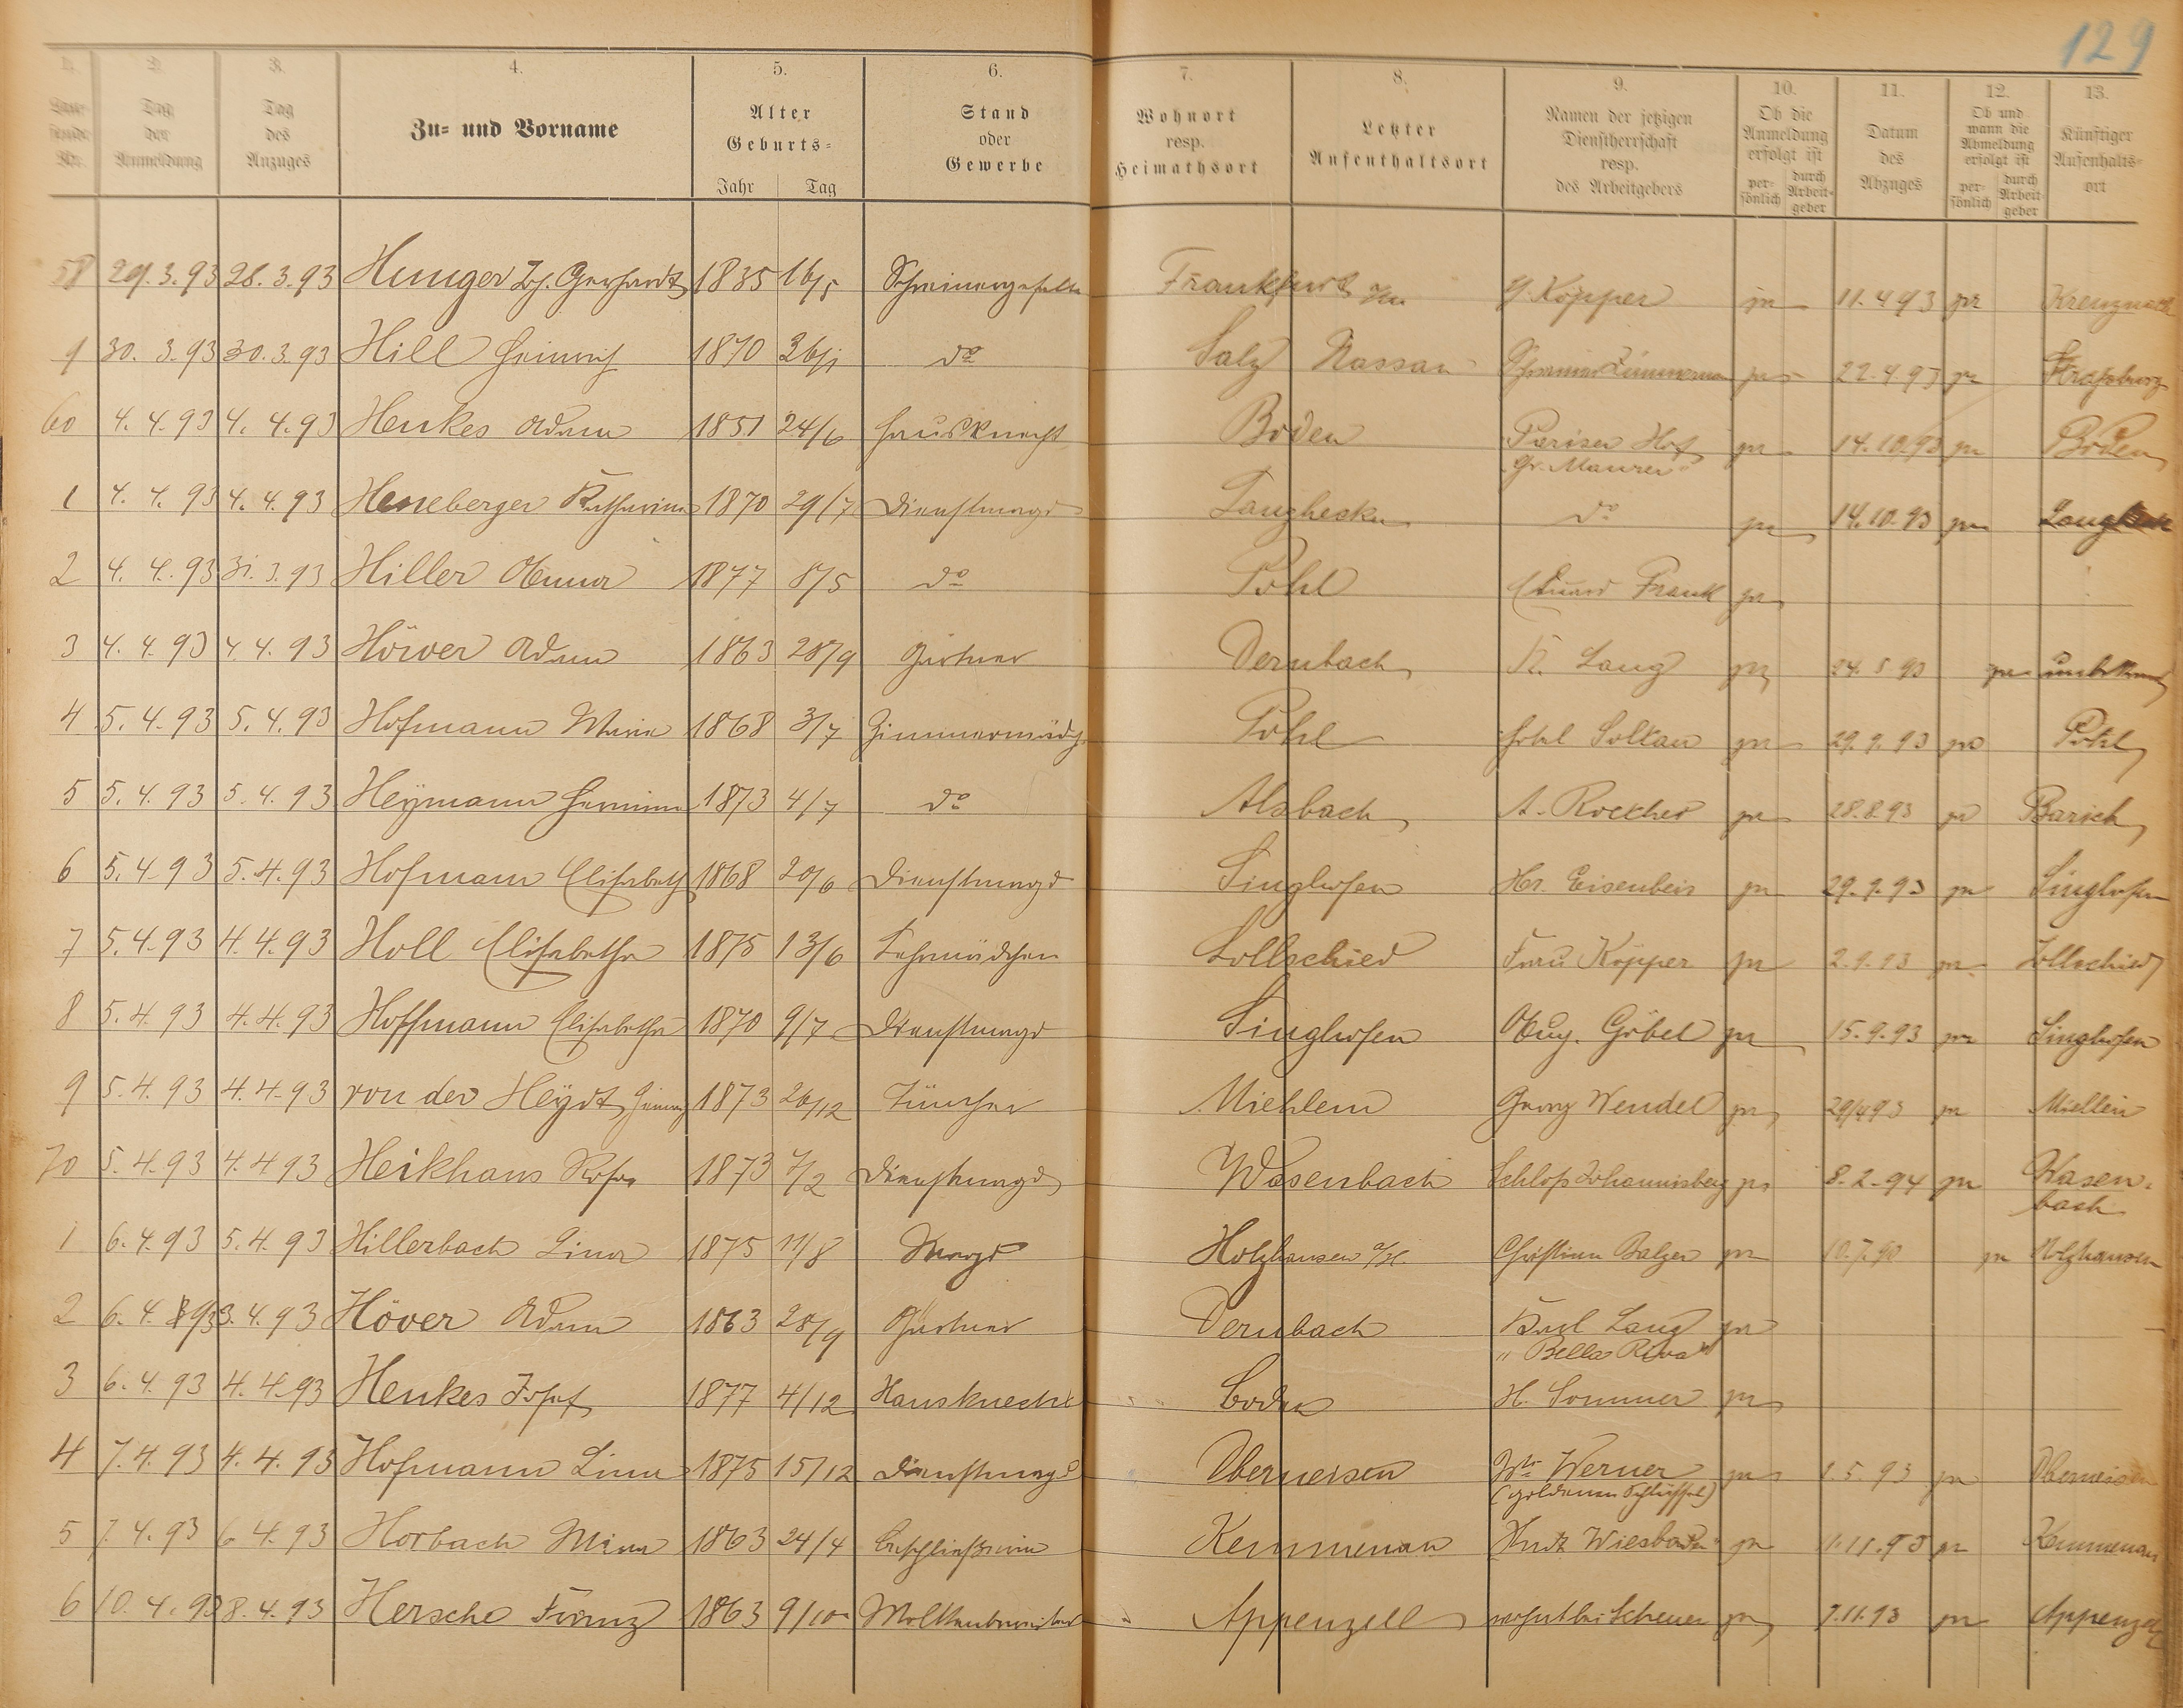 129
1. 2. 3. 4. 5. 6. 7. 8. 9. 10. 11. 12. 13.
Laufende Nr.
Tag der Anmeldung
Tag des Anzuges
Zu- und Vorname
Alter
Geburts-
Jahr Tag
Stand oder Gewerbe
Wohnort resp. Heimathsort
Letzter Aufenthaltsort
Namen der jetzigen Dienstherrschaft resp. des Arbeitgebers
Ob die Anmeldung erfolgt ist
persönlich durch Arbeitgeber
Datum des Abzuges
Ob und wann die Abmeldung erfolgt ist
persönlich durch Arbeitgeber
Künftiger Aufenhalts-ort
58 29.3.93 28.3.93 Hunger Gerhardt 1835 16/5 Schreinergeselle Frankfurt a/m Köpper 11.4.93 Kreuznach
9 30.3.93 30.3.93 Hill Heinrich 1870 26/1 do Salz Nassau Zimmerman 22.4.93 Straßburg
60 4.4.93 4.4.93 Henkes Adam 1851 24/6 Hausknecht Boden Pariser Hof 14.10.93 Boden
Gr. Maurer
1 4.4.93 4.4.93 Heneberger Katharina 1870 29/7 Dienstmagd Langhecke do 14.10.93
2 4.4.93 31.3.93 Hiller Anna 1877 8/5 do Pohl Eduard Frank
3 4.4.93 4.4.93 Höwer Adam 1863 28/9 Gärtner Dernbach K. Lang 24.5.93 unbekannt
4 5.4.93 5.4.93 Hofmann Maria 1868 3/7 Zimmermädch. Pohl Hotel Soltau 29.9.93 Pohl
5 5.4.93 5.4.93 Heymann Hermine 1873 4/7 do Alsbach A. Roecker 28.8.93
6 5.4.93 5.4.93 Hofmann Elisabeth 1868 20/6 Dienstmagd Singhofen Hr. Eisenbeis 29.9.93 Singhofen
7 5.4.93 4.4.93 Holl Elisabetha 1875 13/6 Lehrmädchen Lollschied Frau Köpper 2.9.93 Lollschied
8 5.4.93 4.4.93 Hoffmann Elisabetha 1870 9/7 Dienstmagd Singhofen Aug. Göbel 15.9.93 Singhofen
9 5.4.93 4.4.93 von der Heydt 1873 26/12 Tüncher Miehlem Georg Wendel 29/4 93 Miellen
70 5.4.93 4.4.93 Heikhaus Rosa 1873 7/2 Dienstmagd Wasenbach Schloß Johannisberg 8.2.94 Wasen-
bach
1 6.4.93 5.4.93 Hillerbach Lina 1875 11/8 Magd Holzhausen a/H. Christian Balzer Holzhausen
2 6.4.93 3.4.93 Höver Adam 1863 28/9 Gärtner Dernbach Karl Lang
"Bella Riva"
3 6.4.93 4.4.93 Henkes Josef 1877 4/12 Hausknecht Boden H. Sommer
4 7.4.93 4.4.93 Hofmann Lina 1875 15/12 Dienstmagd Oberneisen Ww Werner 1.5.93 Oberneisen
(goldenen Schlüssel)
5 7.4.93 6.4.93 Horbach Mina 1863 24/4 Beschließerin Kemmenau Wiesbaden 11.11.93 Kemmenau
6 10.4.93 8.4.93 Hersche Franz 1863 9/10 Appenzell Scheuer 7.11.93 Appenzell